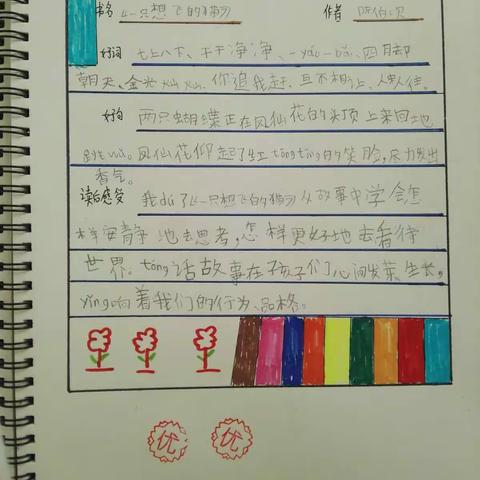 书名 《一只想飞的猫》 作者 陈伯吹
好词 七上八下、干干净净、一yáo一bǎi、四月却
朝天、金光xiǎn xiǎn、你追我赶、互不相让、人来人往。
好句 两只蝴蝶正在凤仙花的头顶上来回地
跳wǔ。凤仙花仰起了红tōng tōng的笑脸,尽力发出
香气。
读后感受 我dú了《一只想飞的猫》从故事中学会怎
样安静地去思考,怎样更好地去看待
世界。tóng话故事在孩子们心间发芽生长,
yǐng响着我们的行为、品格。
优 优